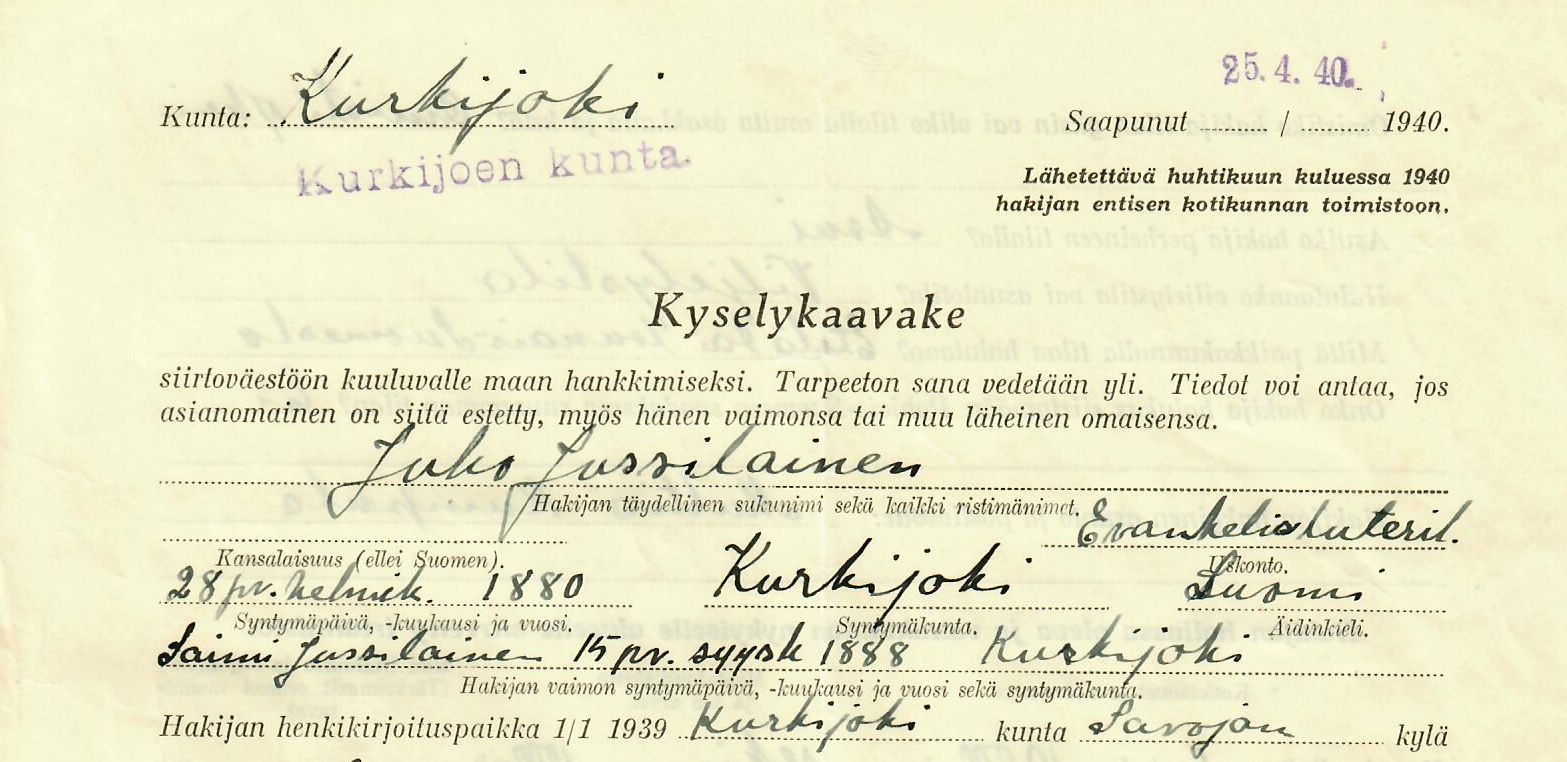 25. 4. 40.
Kunta: Kurkijoki
Saapunut ........ / .......... 1940.
Kurkijoen kunta.
Lähetettävä huhtikuun kuluessa 1940
hakijan entisen kotikunnan toimistoon.
Kyselykaavake
siirtoväestöön kuuluvalle maan hankkimiseksi. Tarpeeton sana vedetään yli. Tiedot voi antaa, jos
asianomainen on siitä estetty, myös hänen vaimonsa tai muu läheinen omaisensa.
Juho Jussilainen
Hakijan täydellinen sukunimi sekä kaikki ristimänimet.
Evankelisluteril.
Kansalaisuus (ellei Suomen).
Uskonto.
28 pv. helmik. 1880 Kurkijoki Suomi
Syntymäpäivä, -kuukausi ja vuosi. Syntymäkunta. Äidinkieli.
Saimi Jussilainen 15 pv. syysk 1888 Kurkijoki
Hakijan vaimon syntymäpäivä, -kuukausi ja vuosi sekä syntymäkunta.
Hakijan henkikirjoituspaikka 1/1 1939 Kurkijoki kunta Savojan kylä